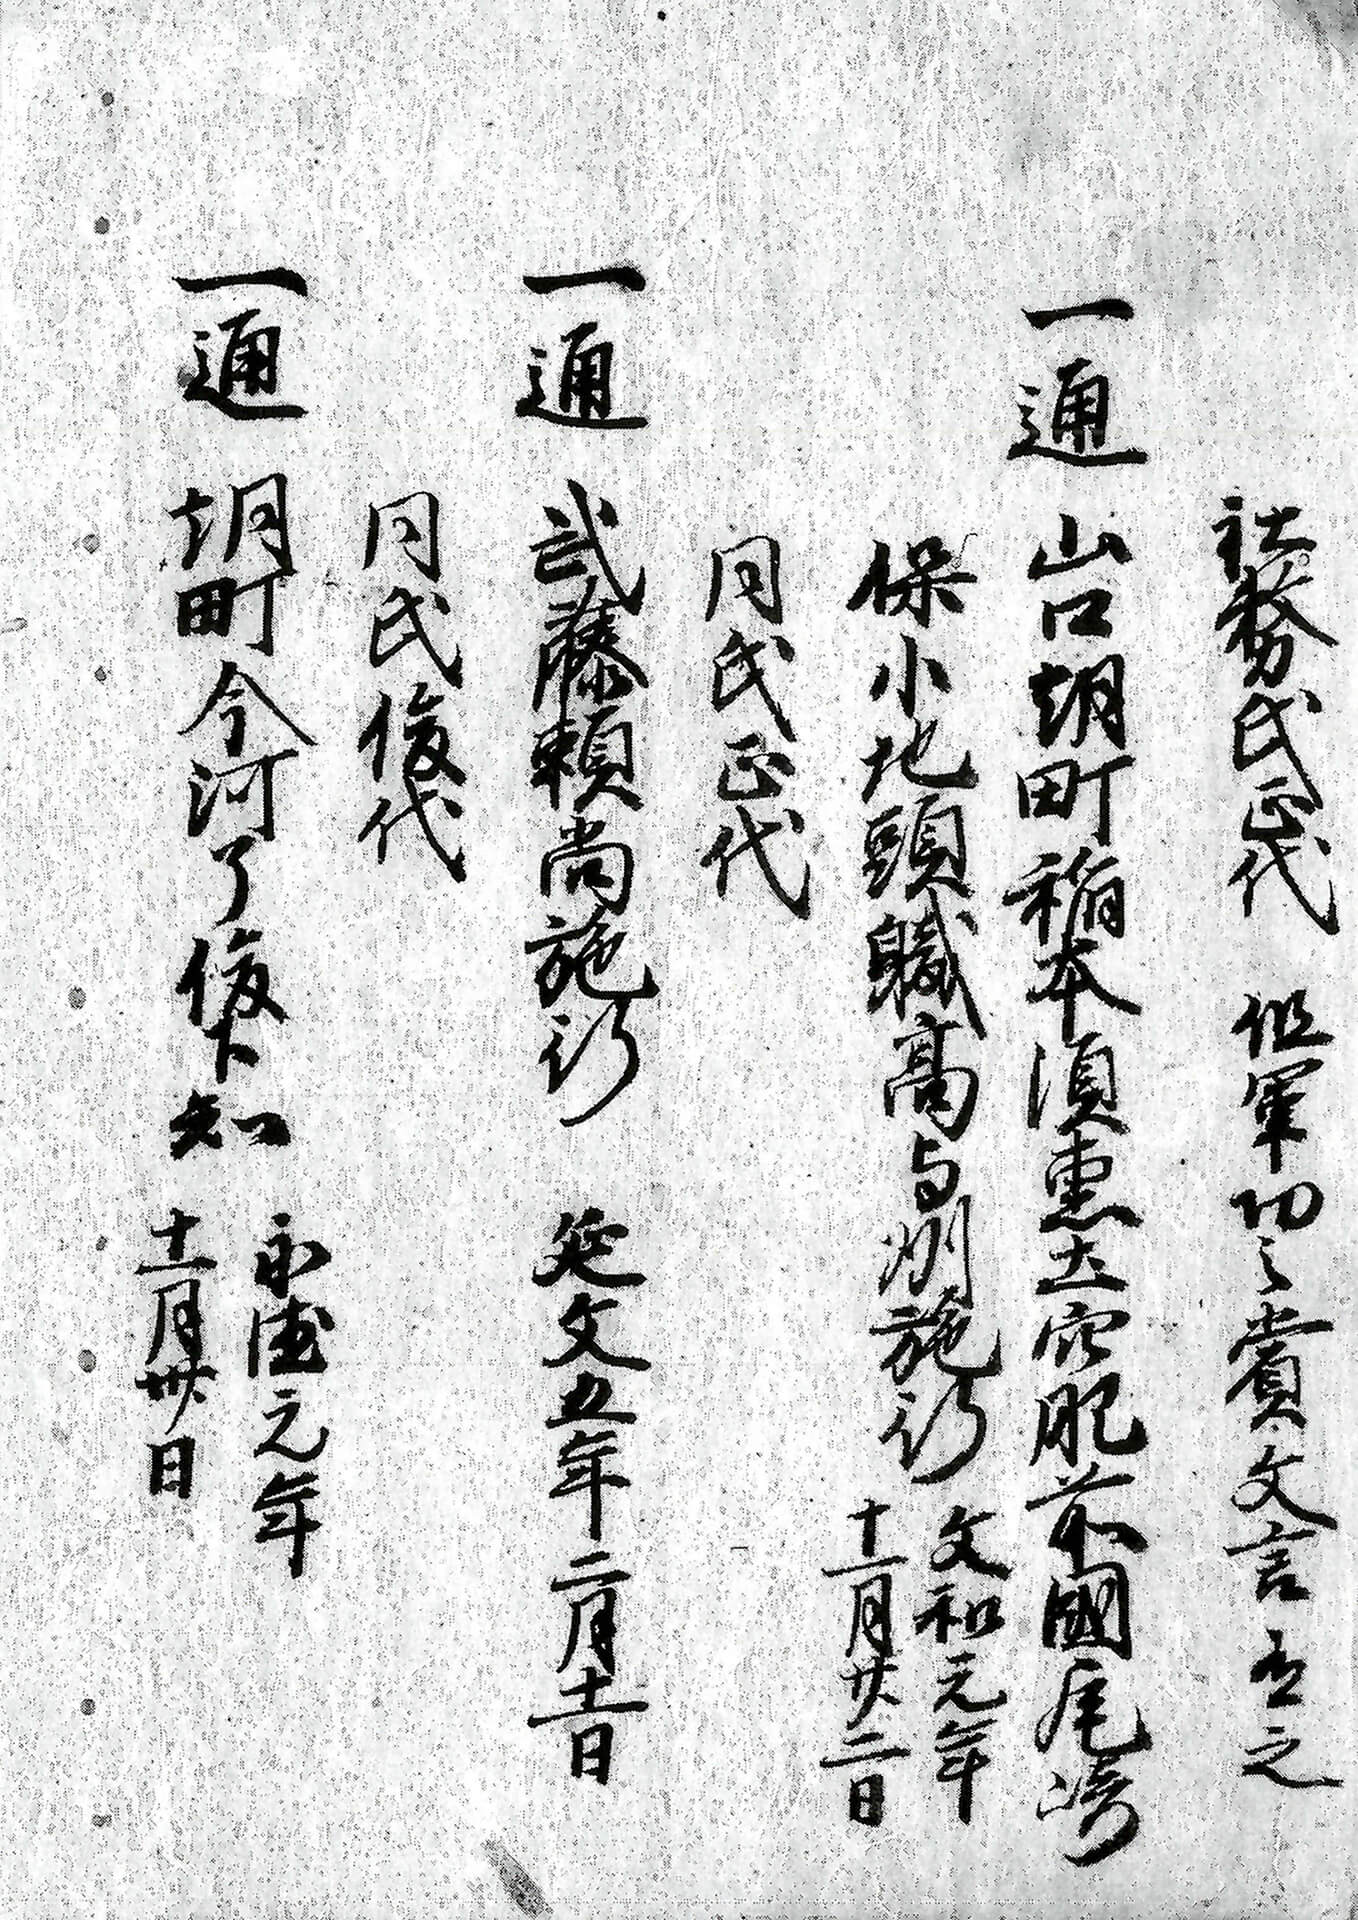 社務氏正代 但軍功之賞文言在之
一通 山口胡町稲本須恵土穴肥前國尾崎
保小地頭職高与州施行 文和元年
十一月廿二日
同氏正代
一通 武藤頼尚施行 延文五年二月十一日
同氏俊代
一通 胡町今河了俊下知 永徳元年
十一月廿六日